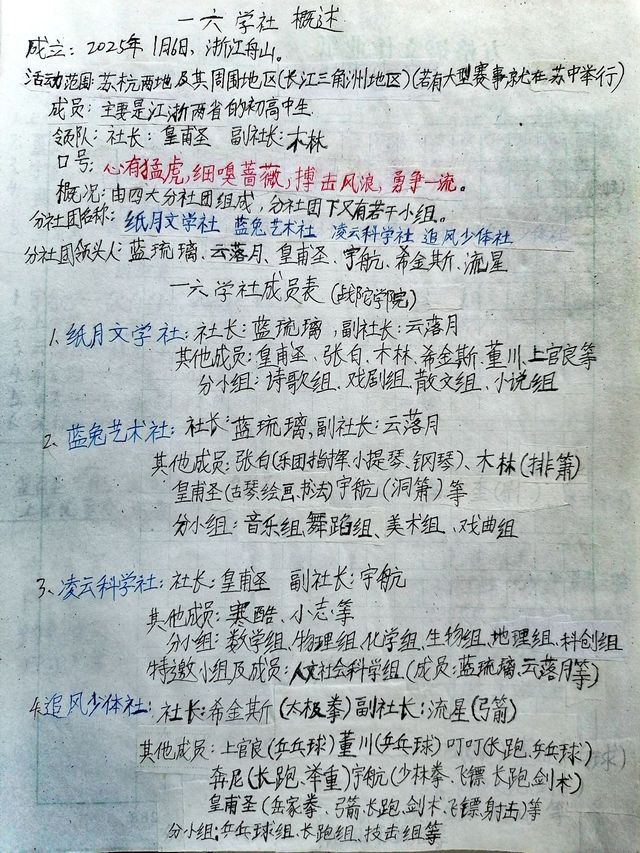 一六学社 概述
成立：2025年1月6日，浙江舟山。
活动范围：苏杭两地及其周围地区(长江三角洲地区)(若有大型赛事就在苏中举行)
成员：主要是江浙两省的初高中生.
领队：社长：皇甫圣 副社长：木林
口号：心有猛虎，细嗅蔷薇，搏击风浪，勇争一流。
概况：由四大分社团组成，分社团下又有若干小组。
分社团名称：纸月文学社 蓝兔艺术社 凌云科学社 追风少体社
分社团领头人：蓝琉璃、云落月、皇甫圣、宇航、希金斯、流星
一六学社成员表(战陀学院)
1、纸月文学社：社长：蓝琉璃，副社长：云落月
其他成员：皇甫圣、张白、木林、希金斯、董川、上官良等
分小组：诗歌组、戏剧组、散文组、小说组
2、蓝兔艺术社：社长：蓝琉璃，副社长：云落月
其他成员：张白(乐团指挥、小提琴、钢琴)、木林(排箫)
皇甫圣(古琴绘画、书法)宇航(洞箫)等
分小组：音乐组、舞蹈组、美术组、戏曲组
3、凌云科学社：社长：皇甫圣 副社长：宇航
其他成员：寒酷、小志等
分小组：数学组、物理组、化学组、生物组、地理组、科创组
特邀小组及成员：人文社会科学组(成员：蓝琉璃、云落月等)
4、追风少体社：社长：希金斯(太极拳)副社长：流星(弓箭)
其他成员：上官良(乒乓球)董川(乒乓球)叮叮(长跑、乒乓球)
奔尼(长跑、举重)宇航(少林拳、飞镖、长跑、剑术)
皇甫圣(岳家拳、弓箭、长跑、剑术、飞镖、射击)等
分小组：乒乓球组、长跑组、技击组等